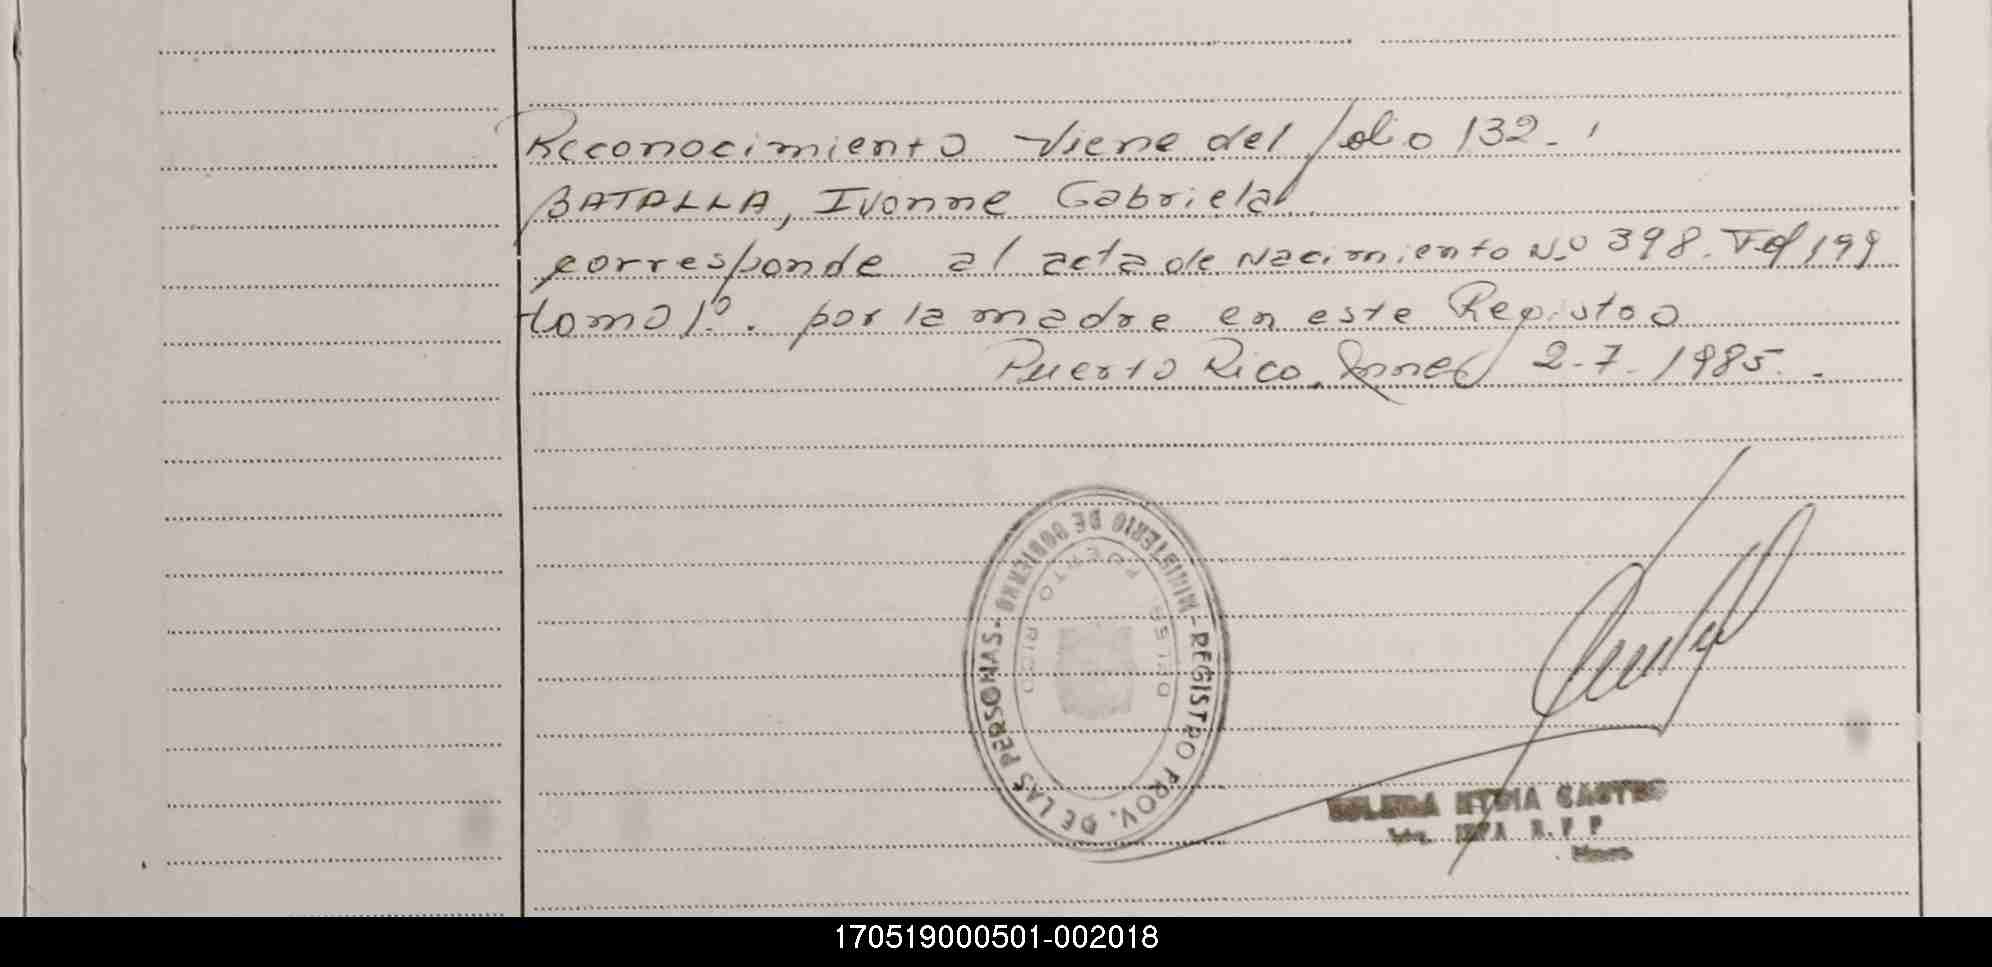 Reconocimiento Viene del folio 132.
BATALLA, Ivonne Gabriela
corresponde al acta de Nacimiento Nº 398. Fol 199
tomo 1º. por la madre en este Registro
Puerto Rico, 2-7-1985.
MINISTERIO DE GOBIERNO - REGISTRO PROV. DE LAS PERSONAS -
PUERTO RICO
CASTRO
170519000501-002018